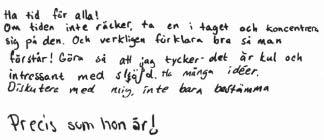 Ha tid för alla!
Om tiden inte räcker, ta en i taget och koncentrera
sig på den. Och verkligen förklara bra så man
förstår! Göra så att jag tycker det är kul och
intressant med slöjd. Ha många idéer.
Diskutera med mig, inte bara bestämma
Precis som hon är!